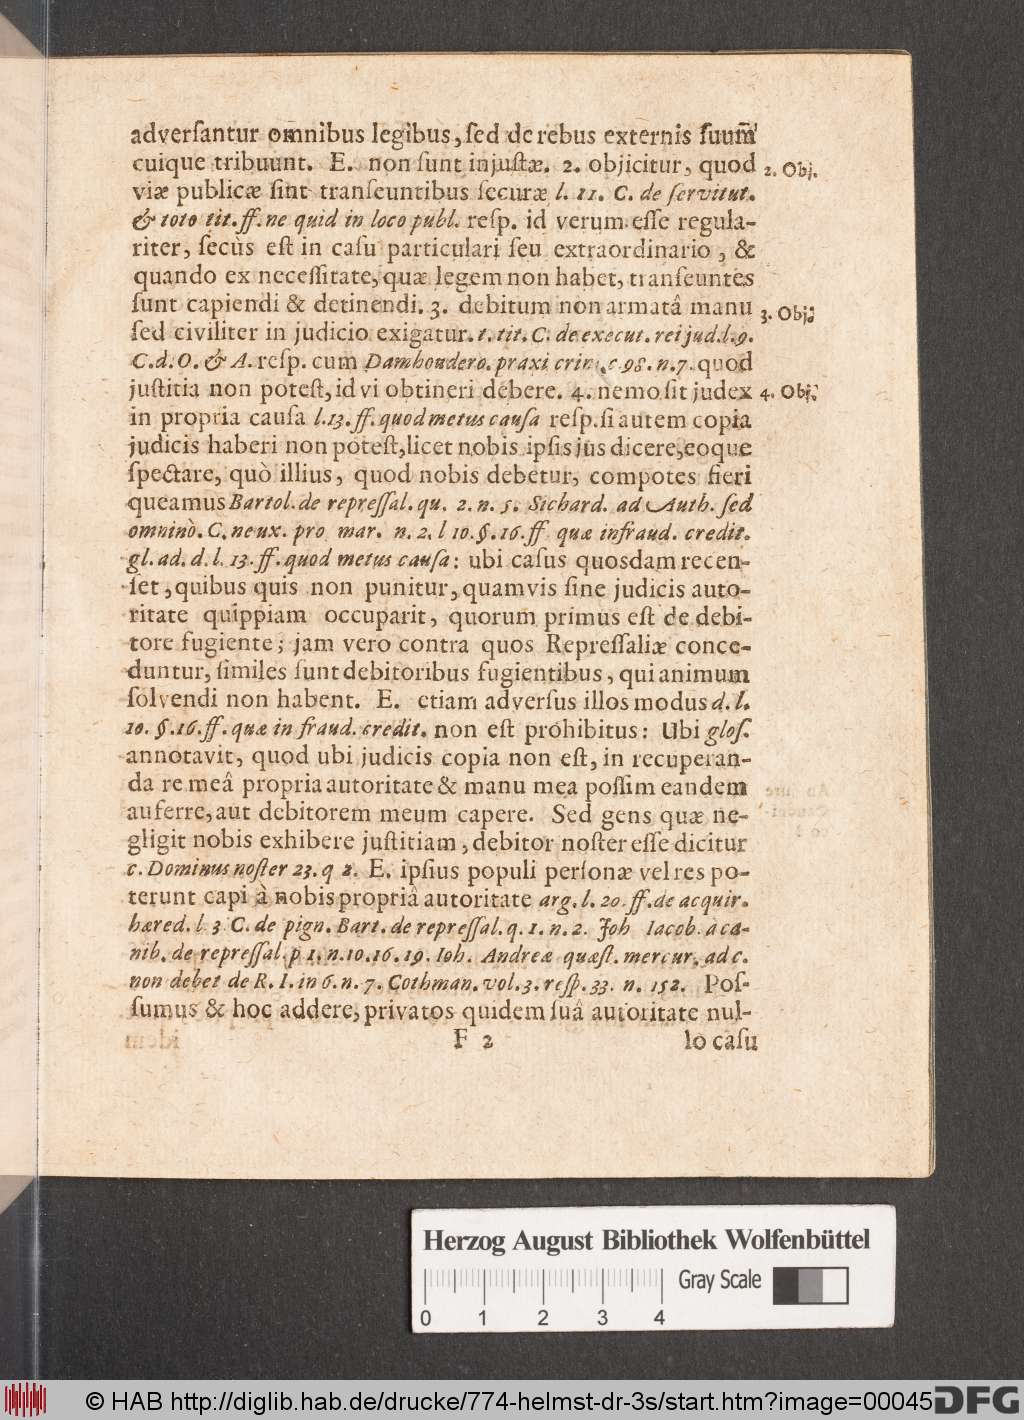 adverſantur omnibus legibus, ſed de rebus externis ſuum̃
cuique tribuunt. E. non ſunt injuſtæ. 2. objicitur, quod
2. Obj.
viæ publicæ ſint tranſeuntibus ſecuræ l. 11. C. de ſervitut.
& toto tit. ff. ne quid in loco publ. reſp. id verum eſſe regula-
riter, ſecùs eſt in caſu particulari ſeu extraordinario, &
quando ex neceſſitate, quæ legem non habet, tranſeuntes
ſunt capiendi & detinendi. 3. debitum non armatâ manu
3. Obj.
ſed civiliter in judicio exigatur. t. tit. C. de execut. rei jud. l. 9.
C. d. O. & A. reſp. cum Damhoudero. praxi crim. c. 98. n. 7. quod
juſtitia non poteſt, id vi obtineri debere. 4. nemo ſit judex
4. Obj.
in propria cauſa l. 13. ff. quod metus cauſa reſp. ſi autem copia
judicis haberi non poteſt, licet nobis ipſis jus dicere, eoque
ſpectare, quò illius, quod nobis debetur, compotes fieri
queamus Bartol. de repreſſal. qu. 2. n. 5. Sichard. ad Auth. ſed
omninò. C. ne ux. pro mar. n. 2. l 10. §. 16. ff quæ in fraud. credit.
gl. ad. d. l. 13. ff. quod metus cauſa: ubi caſus quosdam recen-
ſet, quibus quis non punitur, quamvis ſine judicis auto-
ritate quippiam occuparit, quorum primus eſt de debi-
tore fugiente; jam vero contra quos Repreſſaliæ conce-
duntur, ſimiles ſunt debitoribus fugientibus, qui animum
ſolvendi non habent. E. etiam adverſus illos modus d. l.
10. §. 16. ff. quæ in fraud. credit. non eſt prohibitus: Ubi gloſ.
annotavit, quod ubi judicis copia non eſt, in recuperan-
da re meâ propria autoritate & manu mea poſſim eandem
auferre, aut debitorem meum capere. Sed gens quæ ne-
gligit nobis exhibere juſtitiam, debitor noſter eſſe dicitur
c. Dominus noſter 23. q 2. E. ipſius populi perſonæ vel res po-
terunt capi à nobis propriâ autoritate arg. l. 20. ff. de acquir.
hæred. l 3 C. de pign. Bart. de repreſſal. q. 1. n. 2. Joh Iacob. à ca-
nib. de repreſſal. p 1. n. 10. 16. 19. Ioh. Andreæ quæſt. mercur. ad c.
non debet de R. I. in 6. n. 7. Cothman. vol. 3. reſp. 33. n. 152. Poſ-
ſumus & hoc addere, privatos quidem ſuâ autoritate nul-
F 2
lo caſu
Herzog August Bibliothek Wolfenbüttel
Gray Scale
0 1 2 3 4
© HAB http://diglib.hab.de/drucke/774-helmst-dr-3s/start.htm?image=00045
DFG